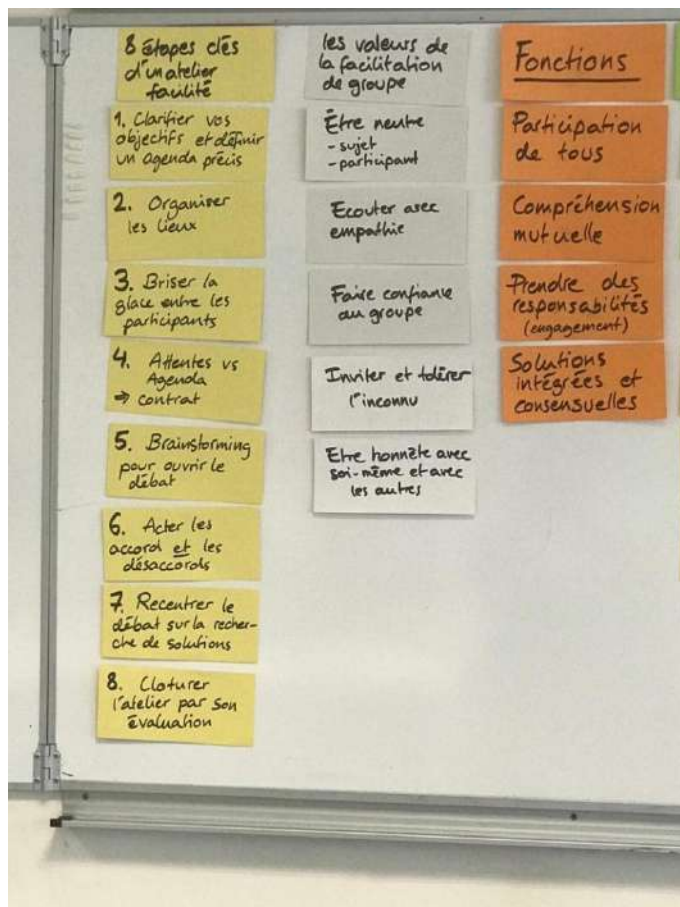 8 étapes clés
d'un atelier
facilité
1. Clarifier vos
objectifs et définir
un agenda précis
2. Organiser
les lieux
3. Briser la
glace entre les
participants
4. Attentes vs
Agenda
⇒ contrat
5. Brainstorming
pour ouvrir le
débat
6. Acter les
accord et les
désaccords
7. Recentrer le
débat sur la recher-
che de solutions
8. Cloturer
l'atelier par son
évaluation
les valeurs de
la facilitation
de groupe
Être neutre
- sujet
- participant
Ecouter avec
empathie
Faire confiance
au groupe
Inviter et tolérer
l'inconnu
Etre honnête avec
soi-même et avec
les autres
Fonctions
Participation
de tous
Compréhension
mutuelle
Prendre des
responsabilités
(engagement)
Solutions
intégrées et
consensuelles